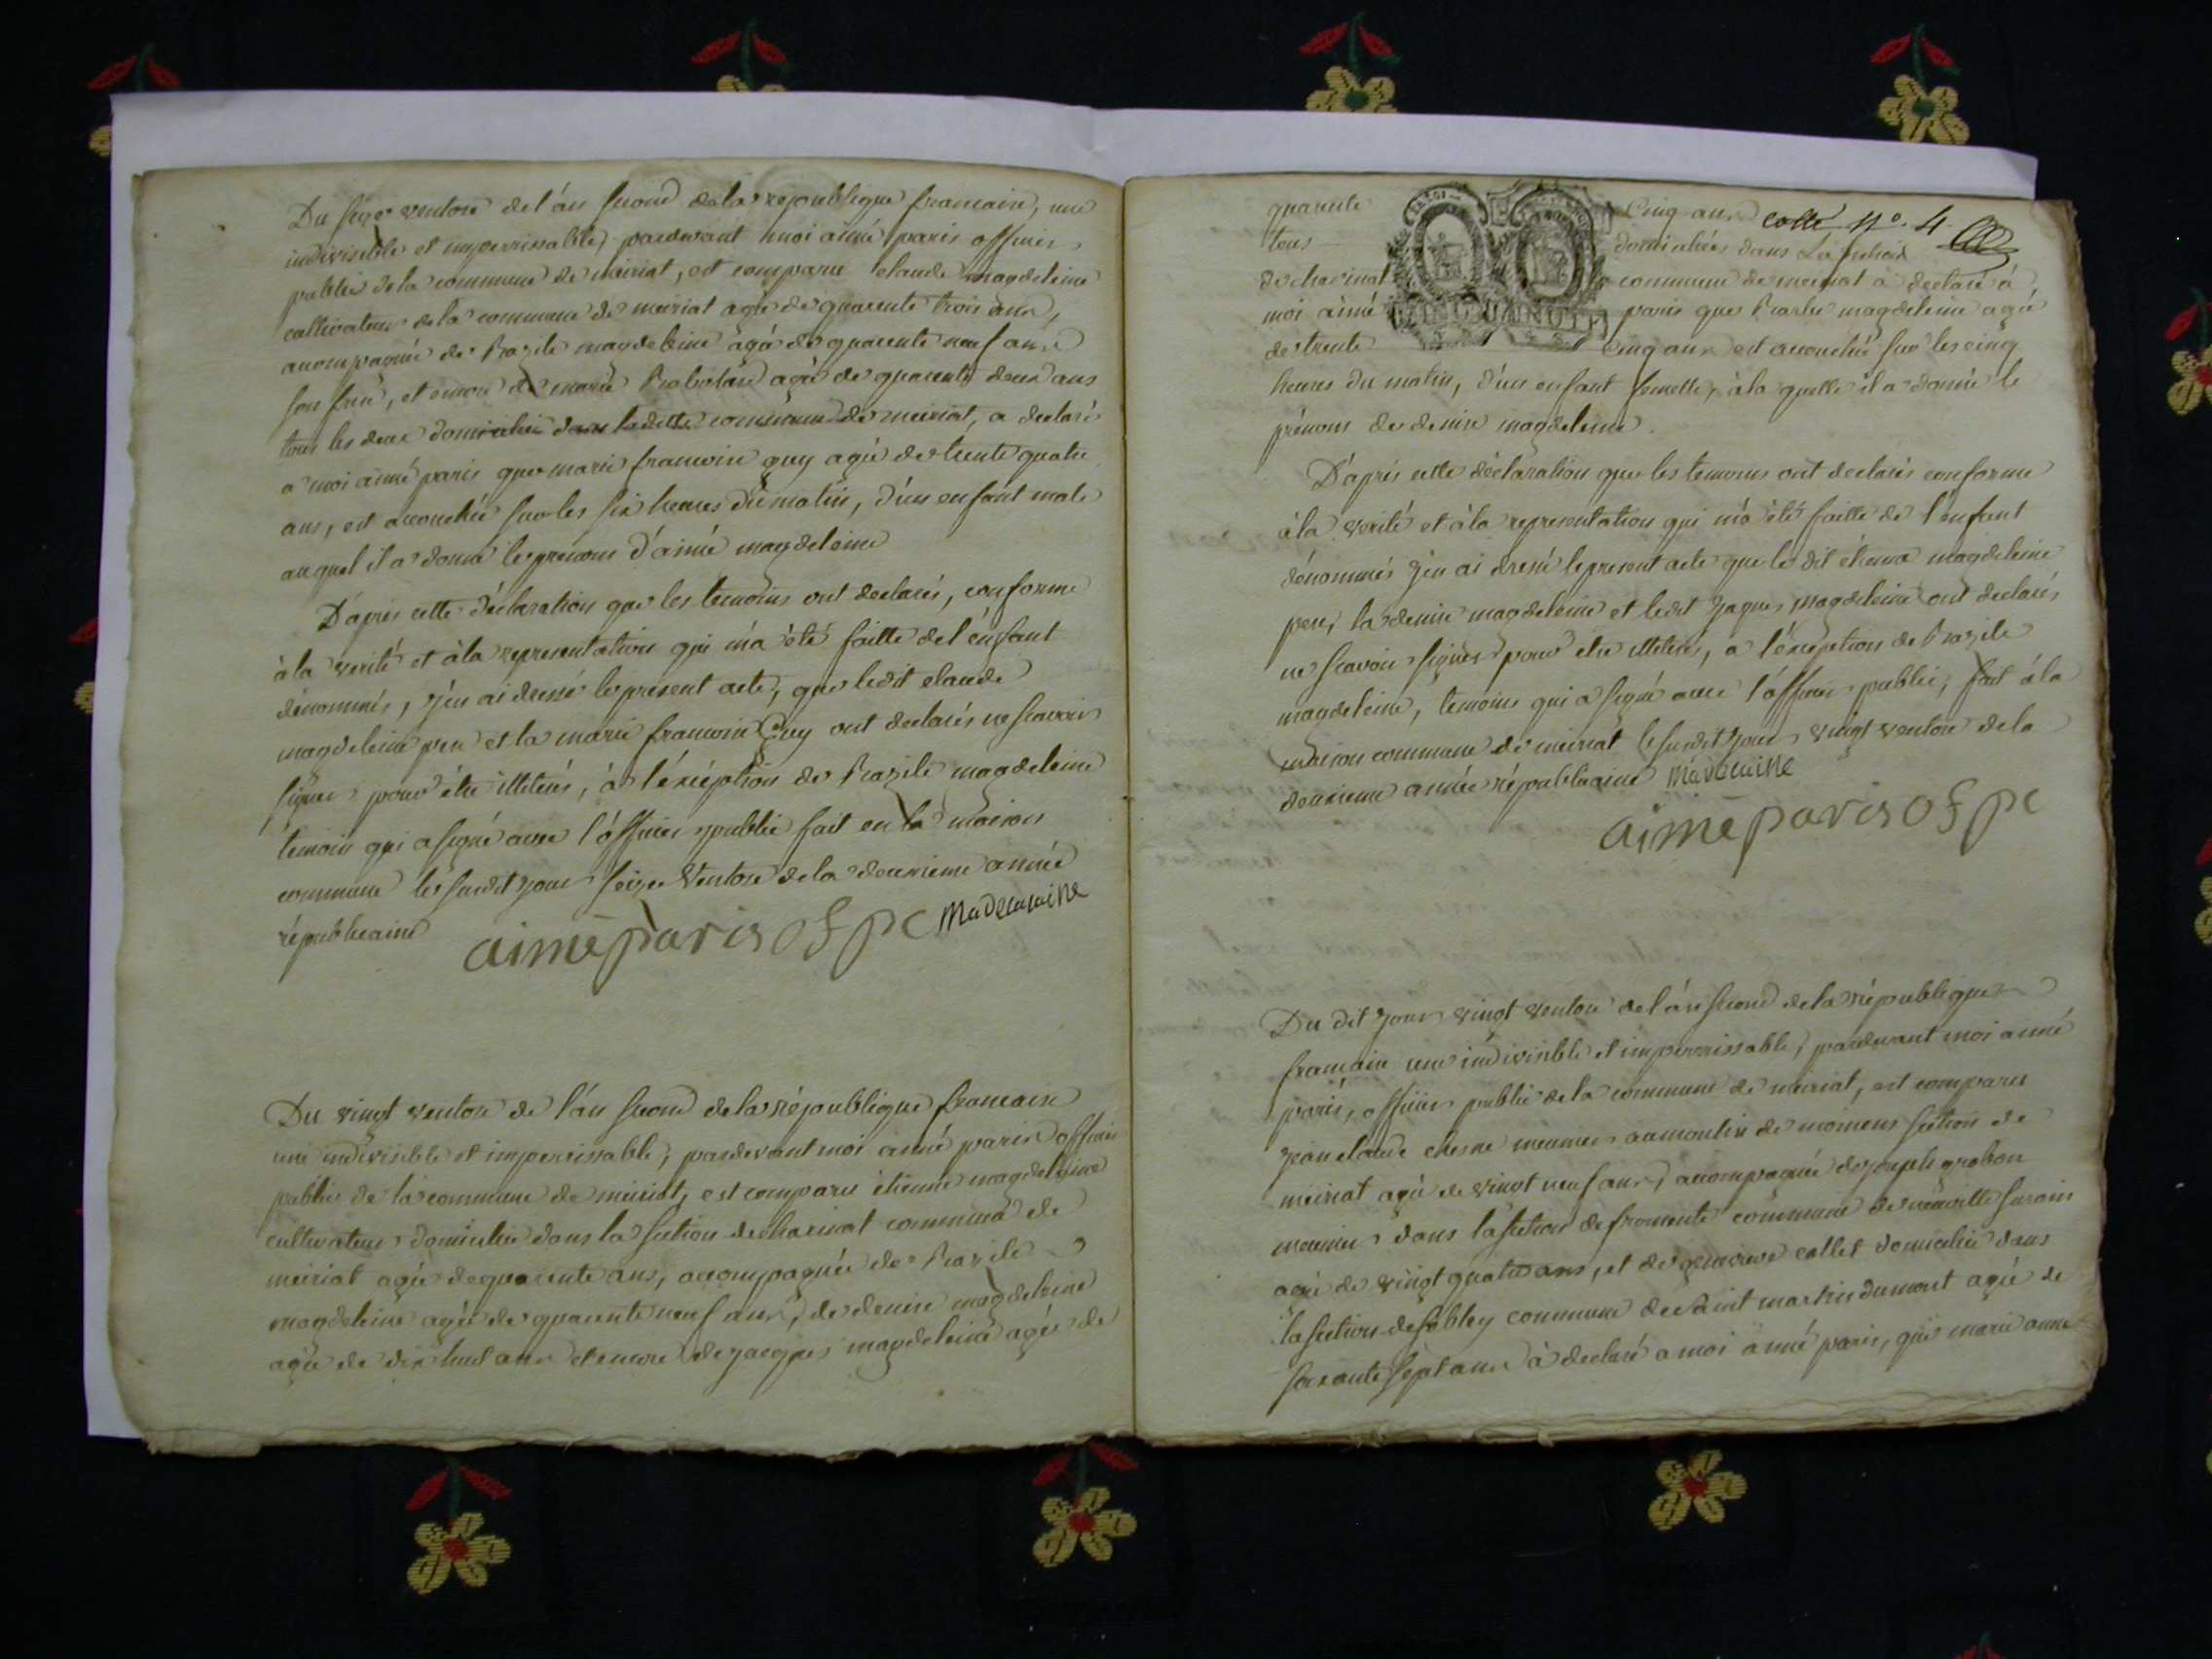 Du seize ventose de l'an second de la republique francaise, une
indivisible et imperrissable, pardevant moi aimé paris officier
public de la commune de meiriat, est comparu claude magdeleine
cultivateur de la commune de meiriat agé de quarente trois ans,
accompagnée de Bazile magdeleine agé de quarente neuf ans
son frere, et encore de marie agée de quarente deux ans
tous les deux domiciliés dans ladette commune de meiriat, a declaré
a moi aimé paris que marie francoise guy agée de trente quatre
ans, est accouchée sur les six heures du matin, d'un enfant male
auquel il a donné le prenom d'aimé magdeleine
D'apres cette déclaration que les temoins ont declarés, conforme
à la verité et à la representation qui m'a été faitte de l'enfant
dénommés, j'en ai dressé le present acte, que ledit claude
magdeleine pere et la marie francoise Guy ont declarés ne scavoir
signer pour étre illiterés, à l'éxception de Bazile magdeleine
temoin qui a signé avec l'officier public fait en la maison
commune le susdit jour seize ventose de la deuxieme année
républicaine aimé paris of pc madelaine
Du vingt ventose de l'an second de la république francaise
une indivisible et imperrissable, pardevant moi aimé paris officier
public de la commune de meiriat, est comparu étienne magdeleine
cultivateur domicilié dans la section de chavinat commune de
meiriat agée de quarente ans, accompagnée de Bazile
magdeleine agée de quarente neuf ans, de denise magdeleine
agée de dix huit ans et encore de jacques magdeleine agés de
quarente cinq ans cotté n°. 4.
tous domiciliés dans
de chavinat commune de meiriat à declaré à
moi aimé paris que magdeleine agée
de trente cinq ans est accouchée sur les cinq
heures du matin, d'un enfant femelle, à la quelle il a donnée le
prénom de denise magdeleine.
D'après cette déclaration que les temoins ont declarés conforme
à la verité et à la representation qui m'a été faitte de l'enfant
dénommés j'en ai dressé le present acte que le dit étienne magdeleine
pere, la denise magdeleine et ledit jaques magdeleine ont declarés
ne scavoir signer pour etre illiterés, a l'éxception de Bazile
magdeleine, temoins qui a signé avec l'officier public, fait à la
maison commune de meiriat le susdit jour vingt ventose de la
deuxieme année républicaine madelaine
aimé paris of pc
Du dit jour vingt ventose de l'an second de la république
francaise une indivisible et imperrissable, pardevant moi aimé
paris, officier public de la commune de meiriat, est comparu
jean claude chesne meunier au moulin de moinens section de
meiriat agée de vingt neuf ans, accompagnée de joseph grobon
meunier dans la section de fromente commune de neuville surain
agé de vingt quatre ans, et de genevieve collet domiciliée dans
la section de soblay commune de saint martin dumont agée de
soixante sept ans à declaré a moi aimé paris, que marie anne